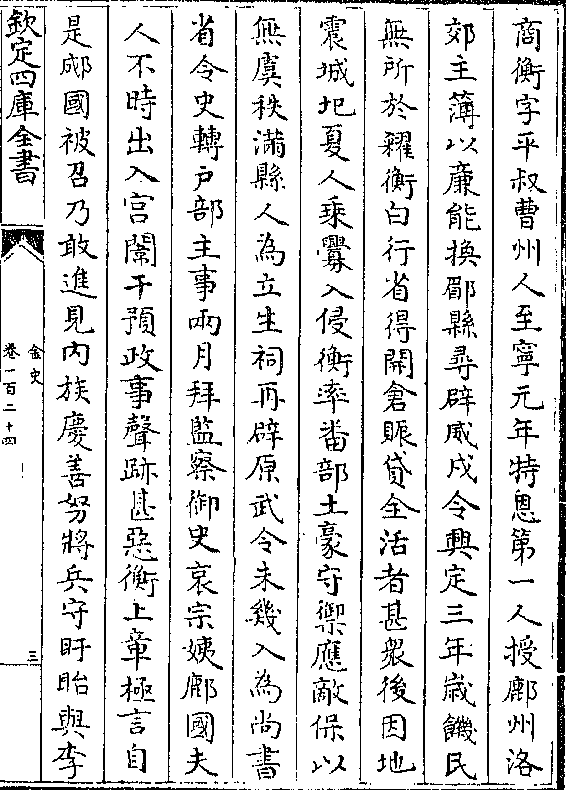 商衡字平叔曹州人至寧元年特恩第一人授鄜州洛
郊主簿以廉能換郿縣尋辟威戎令興定三年歳饑民
無所於糴衡白行省得開倉賑貸全活者甚衆後因地
震城圮夏人乗釁入侵衡率蕃部土豪守禦應敵保以
無虞秩滿縣人為立生祠再辟原武令未幾入為尚書
省令史轉戶部主事兩月拜監察御史哀宗姨郕國夫
人不時出入宫闈干預政事聲跡甚惡衡上章極言自
是郕國被召乃敢進見内族慶善努將兵守盱眙與李
欽定四庫全書
金史
卷一百二十四
三